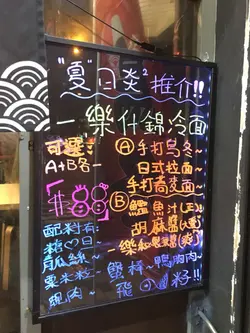 "夏"日炎²推介!!
一樂什錦冷面
可選
A+B各一
$88
Ⓐ手打烏冬~
日式拉面~
手打蕎麦面~
Ⓑ鰹魚汁(正)
胡麻醬(
樂
配料有:
糖心日
瓜絲~
粟米粒~
腿肉~
蟹棒~鴨胸肉~
飛 籽!!